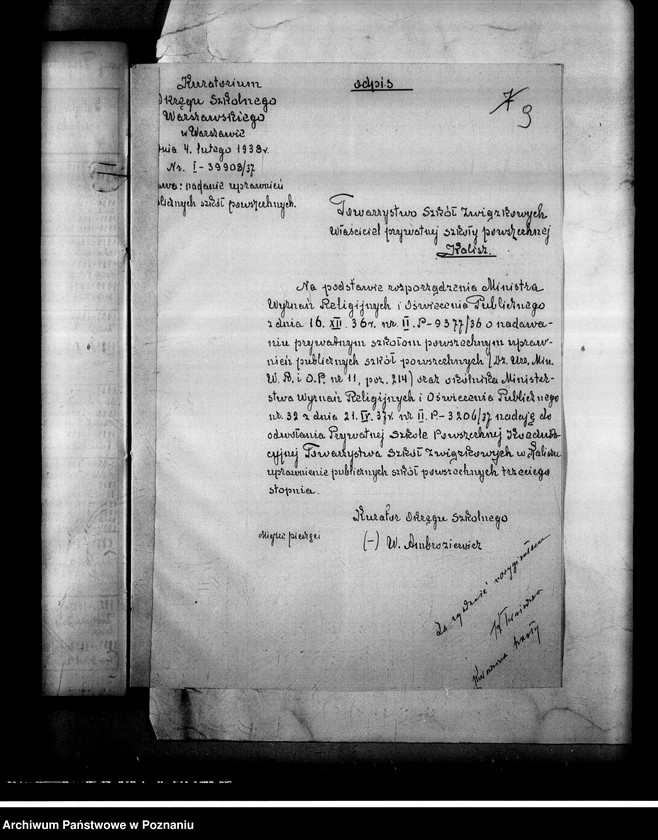 Kuratorium
Okręgu Szkolnego
Warszawskiego
w Warszawie
dnia 4. lutego 1938 r.
Nr. I-39908/37
nadanie uprawnień
szkół powszechnych.
odpis
7
9
Towarzystwo Szkół Związkowych
Właściciel prywatnej szkoły powszechnej
Kalisz.
Na podstawie rozporządzenia Ministra
Wyznań Religijnych i Oświecenia Publicznego
z dnia 16. XII. 36 r. nr. II. P-9377/36 o nadawa-
niu prywatnym szkołom powszechnym upraw-
nień publicznych szkół powszechnych (Dz. Urz. Min.
W. R. i O.P. nr 11, poz. 214) oraz okólnika Minister-
stwa Wyznań Religijnych i Oświecenia Publicznego
nr. 32 z dnia 21. IV. 37 r. nr II. P-3206/37 nadaję do
odwołania Prywatnej Szkole Powszechnej Koeduka-
cyjnej Towarzystwa Szkół Związkowych w Kaliszu
uprawnienie publicznych szkół powszechnych trzeciego
stopnia.
Kurator Okręgu Szkolnego
Miejsce pieczęci
(-) W. Ambroziewicz
Za zgodność z oryginałem
Archiwum Państwowe w Poznaniu